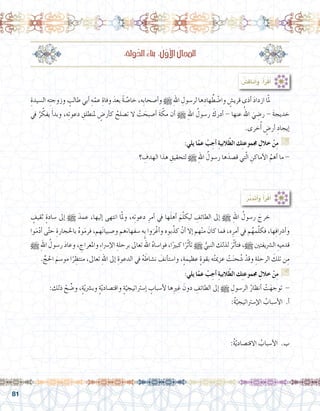 المجال الأول: بناء الدولة.
اقرأ وأناقش
لمّا ازداد أذى قريش واضطهادها لرسول الله ﷺ وأصحابه، خاصّة بعد وفاة عمّه أبي طالب وزوجته السيدة
خديجة – رضي الله عنها – أدرك رسول الله ﷺ أن مكّة أصبحت لا تصلح كأرض لمنطلق دعوته، وبدأ يفكّر في
إيجاد أرض أخرى.
من خلال مجموعتك الطلابيّة أجب عمّا يلي:
– ما أهم الأماكن التي قصدها رسول الله ﷺ لتحقيق هذا الهدف؟
اقرأ وأتدبّر
خرج رسول الله ﷺ إلى الطائف ليكلّم أهلها في أمر دعوته، ولمّا انتهى إليها، عمد إلى سادة ثقيف
وأشرافها، فكلّمهم في أمره، فما كان منهم إلا أن كذّبوه وأغروا به سفهاءهم وصبيانهم، فرموه بالحجارة حتّى أدموا
قدميه الشريفتين ﷺ، فتأثّر لذلك النبيّ ﷺ تأثّرًا كبيرًا، فواساه الله تعالى برحلة الإسراء والمعراج، وعاد رسول الله ﷺ
من تلك الرحلة وقد شحنت عزيمته بقوة عظيمة، واستأنف نشاطه في الدعوة إلى الله تعالى، منتظرًا موسم الحجّ.
من خلال مجموعتك الطلابيّة أجب عمّا يلي:
– توجّهت أنظار الرسول ﷺ إلى الطائف دون غيرها لأسباب إستراتيجيّة واقتصاديّة وبشريّة، وضّح ذلك:
أ. الأسباب الإستراتيجيّة:
ب. الأسباب الاقتصاديّة:
81